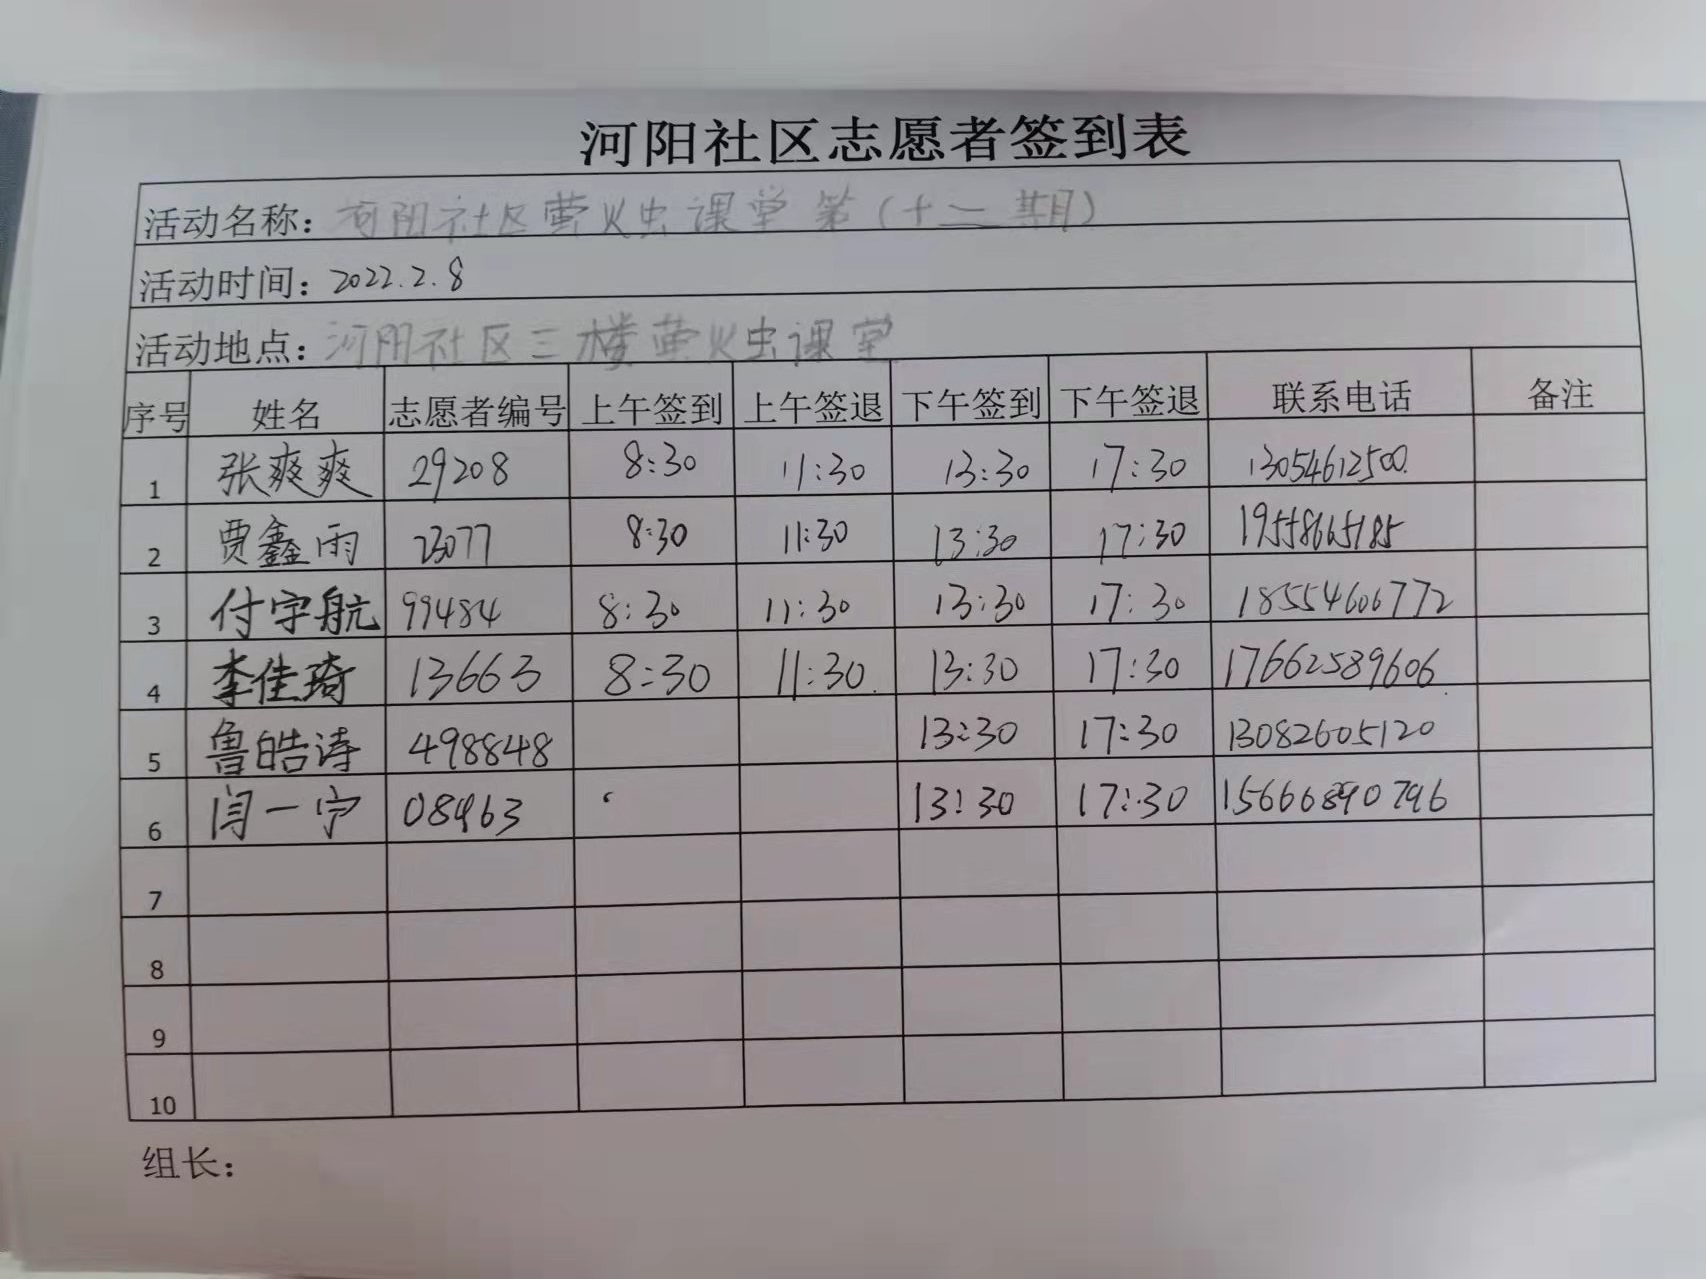 河阳社区志愿者签到表
活动名称：河阳社区萤火虫课堂第（十二期）
活动时间：2022.2.8
活动地点：河阳社区三楼萤火虫课堂
序号 姓名 志愿者编号 上午签到 上午签退 下午签到 下午签退 联系电话 备注
1 张爽爽 29208 8:30 11:30 13:30 17:30 13054612500
2 贾鑫雨 23077 8:30 11:30 13:30 17:30 19558665185
3 付宇航 99484 8:30 11:30 13:30 17:30 18554606772
4 李佳琦 13663 8:30 11:30 13:30 17:30 17662589606
5 鲁皓诗 498848 13:30 17:30 13082605120
6 闫一宁 08963 13:30 17:30 15666890796
7
8
9
10
组长：